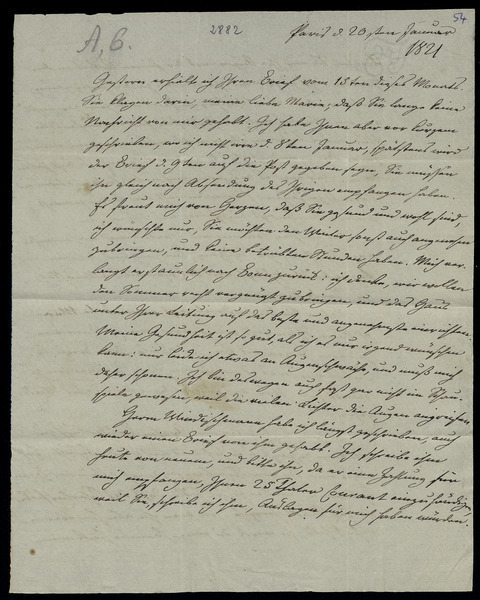 A, 6.
2882
54
Paris d 20sten Januar
1821
Gestern erhielt ich Ihren Brief vom 15ten dieses Monats.
Sie klagen darin, meine liebe Marie, daß Sie lange keine
Nachricht von mir gehabt. Ich habe Ihnen aber vor kurzem
geschrieben, wo ich nicht irre d. 8ten Januar, spätstens wird
der Brief d. 9ten auf die Post gegeben seyn, Sie müssen
ihn gleich nach Absendung des Ihrigen empfangen haben.
Es freut mich von Herzen, daß Sie gesund und wohl sind,
ich wünschte nur, Sie möchten den Winter sonst auch angenehm
zubringen, und keine betrübten Stunden haben. Mich ver-
langt erstaunlich nach Bonn zurück: ich denke, wir wollen
den Sommer recht vergnügt zubringen, und das Haus
unter Ihrer Leitung auf das beste und angenehmste einrichten.
Meine Gesundheit ist so gut, als ich es nur irgend wünschen
kann: nur leide ich etwas an Augenschwäche, und muß mich
daher schonen. Ich bin deswegen auch fast gar nicht im Schau-
spiele gewesen weil die vielen Lichter die Augen angreifen.
Herrn Windischmann habe ich längst geschrieben, auch
wieder einen Brief von ihm gehabt. Ich schreibe ihm
heute von neuem, und bitte ihn, da er eine Zahlung für
mich empfangen, Ihnen 25 Thaler Courant einzuhändigen
weil Sie, schreibe ich ihm, Auslagen für mich haben würden.